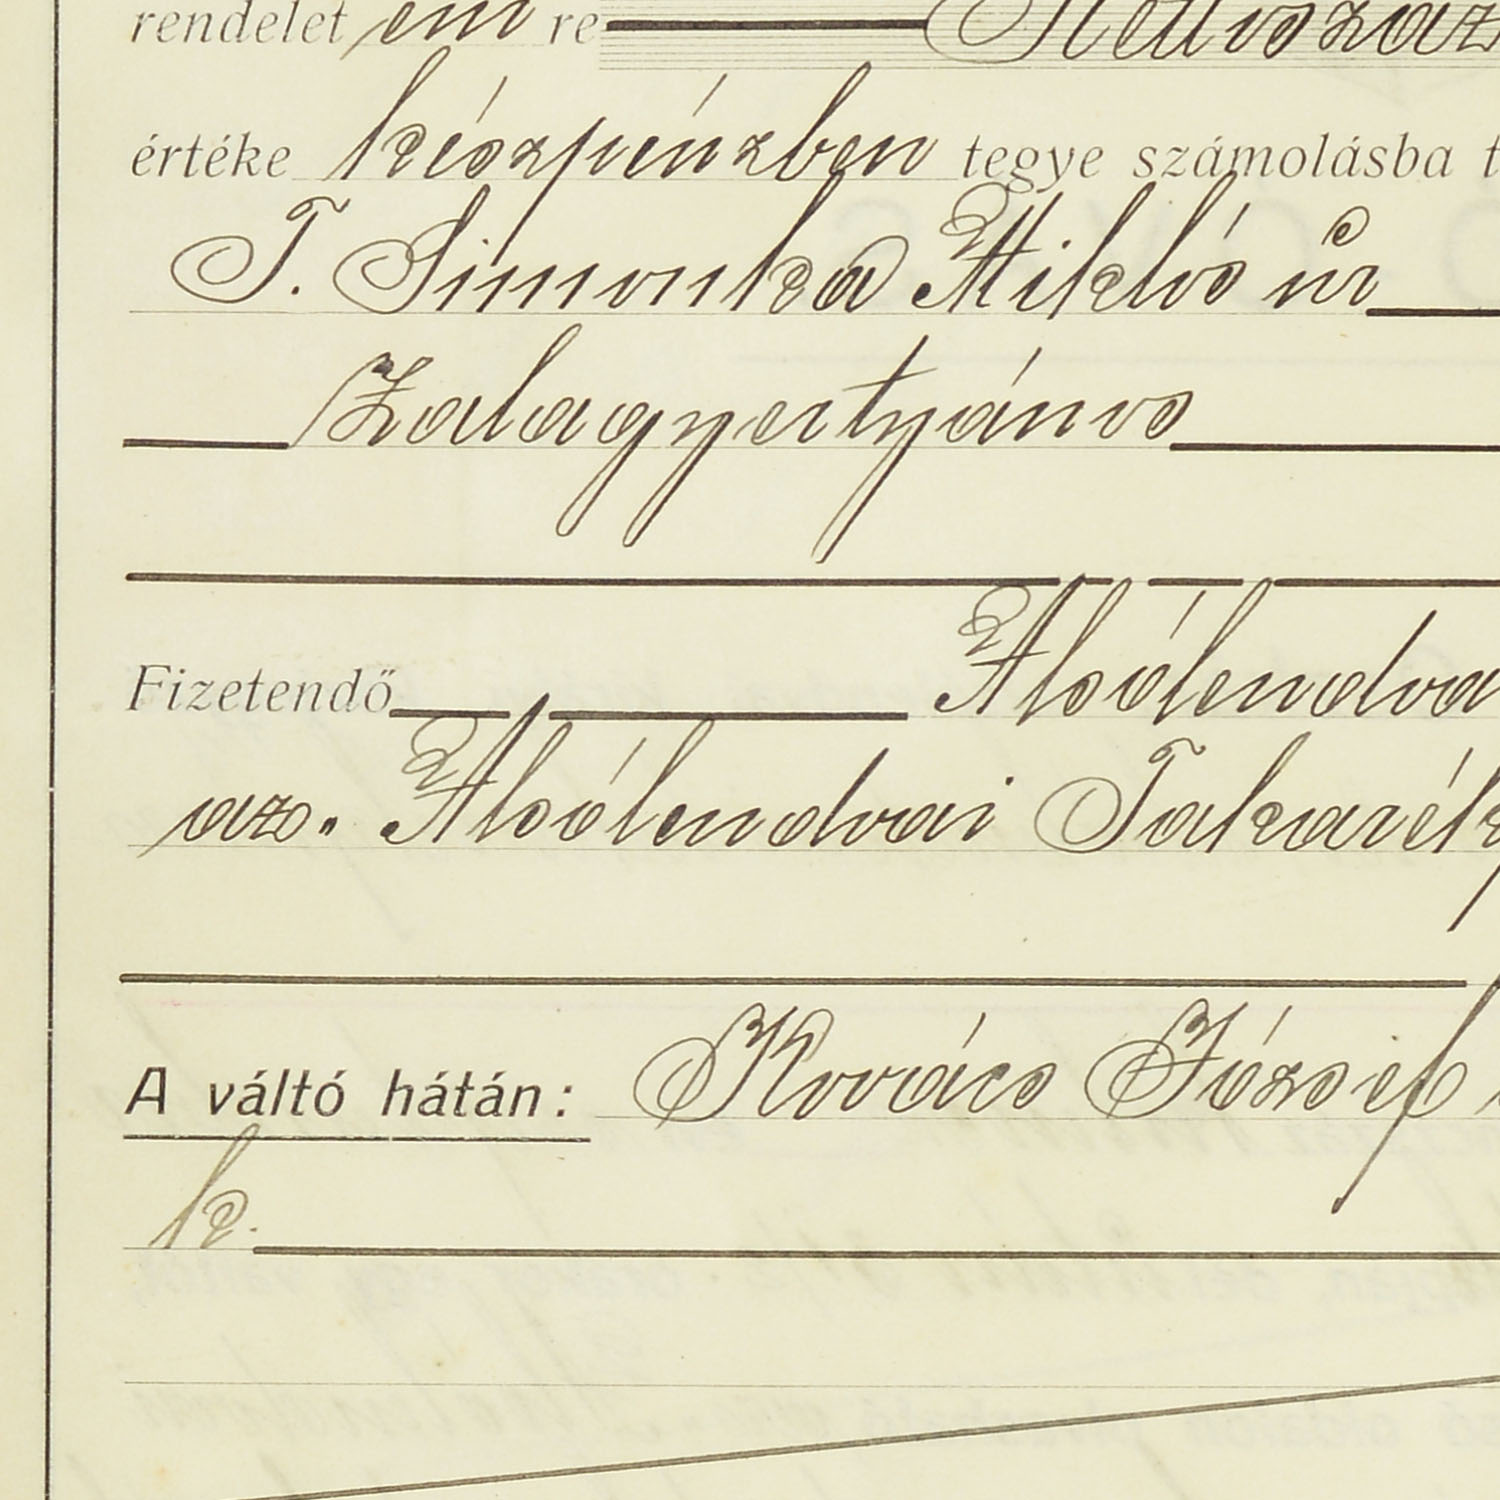 rendelet em re Kettőszáz
értéke készpénzben tegye számolásba
T. Simonka Miklós úr
Zalagyertyános
Fizetendő Alsólendva
az. Alsólendvai Takarék
A váltó hátán: Kovács József
k.